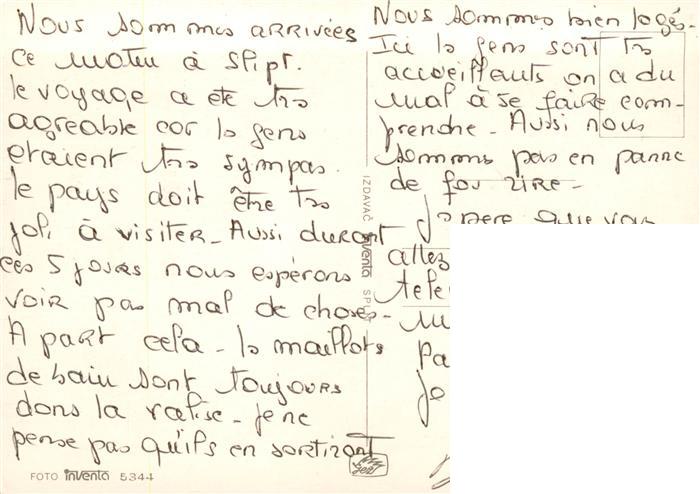 Nous sommes arrivées
ce matin à Split.
le voyage a été trs
agreable car ls gens
etaient trs sympas.
le pays doit être trs
joli à visiter - Aussi durant
ces 5 jours nous espérons
voir pas mal de choses -
A part cela - ls maillots
de bain sont toujours
dans la valise - je ne
pense pas qu'ils en sortiront
FOTO inventa 5344
IZDAVAČ inventa SPLIT
Nous sommes bien logés -
Ici ls gens sont trs
accueillants on a du
mal à se faire com-
prendre - Aussi nous
sommes pas en panne
de fou rire -
J'espère que vous
allez
tele
pa
je